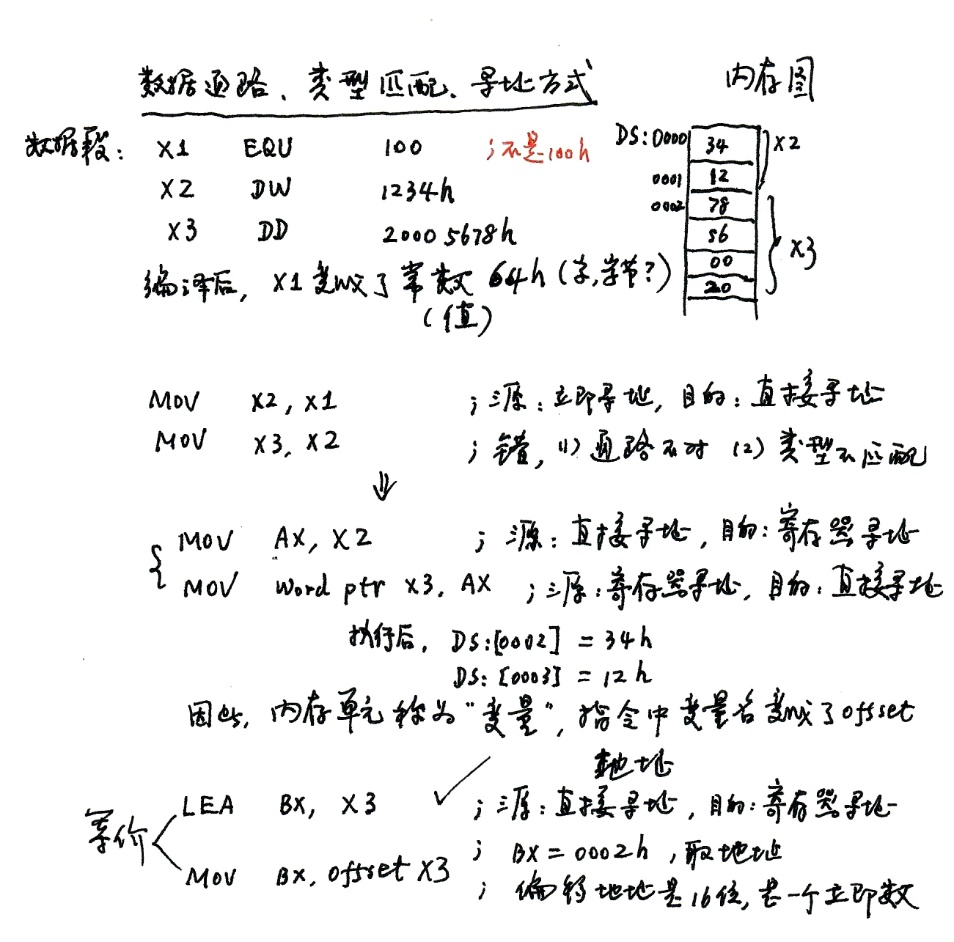 数据通路、类型匹配、寻址方式
内存图
数据段： X1 EQU 100 ；不是100h
X2 DW 1234h
X3 DD 2000 5678h
编译后，X1变成了常数 64h (字,字节?)
(值)
DS:0000 34 X2
0001 12
0002 78
56 X3
00
20
MOV X2, X1 ；源：立即寻址，目的：直接寻址
MOV X3, X2 ；错，(1) 通路不对 (2) 类型不匹配
⇓
{ MOV AX, X2 ；源：直接寻址，目的：寄存器寻址
MOV word ptr X3, AX ；源：寄存器寻址，目的：直接寻址
执行后，DS:[0002] = 34h
DS:[0003] = 12h
因此，内存单元称为“变量”，指令中变量名变成了offset
地址
等价 LEA BX, X3 ✓ ；源：直接寻址，目的：寄存器寻址
；BX = 0002h，取地址
MOV BX, offset X3
；偏移地址是16位，是一个立即数